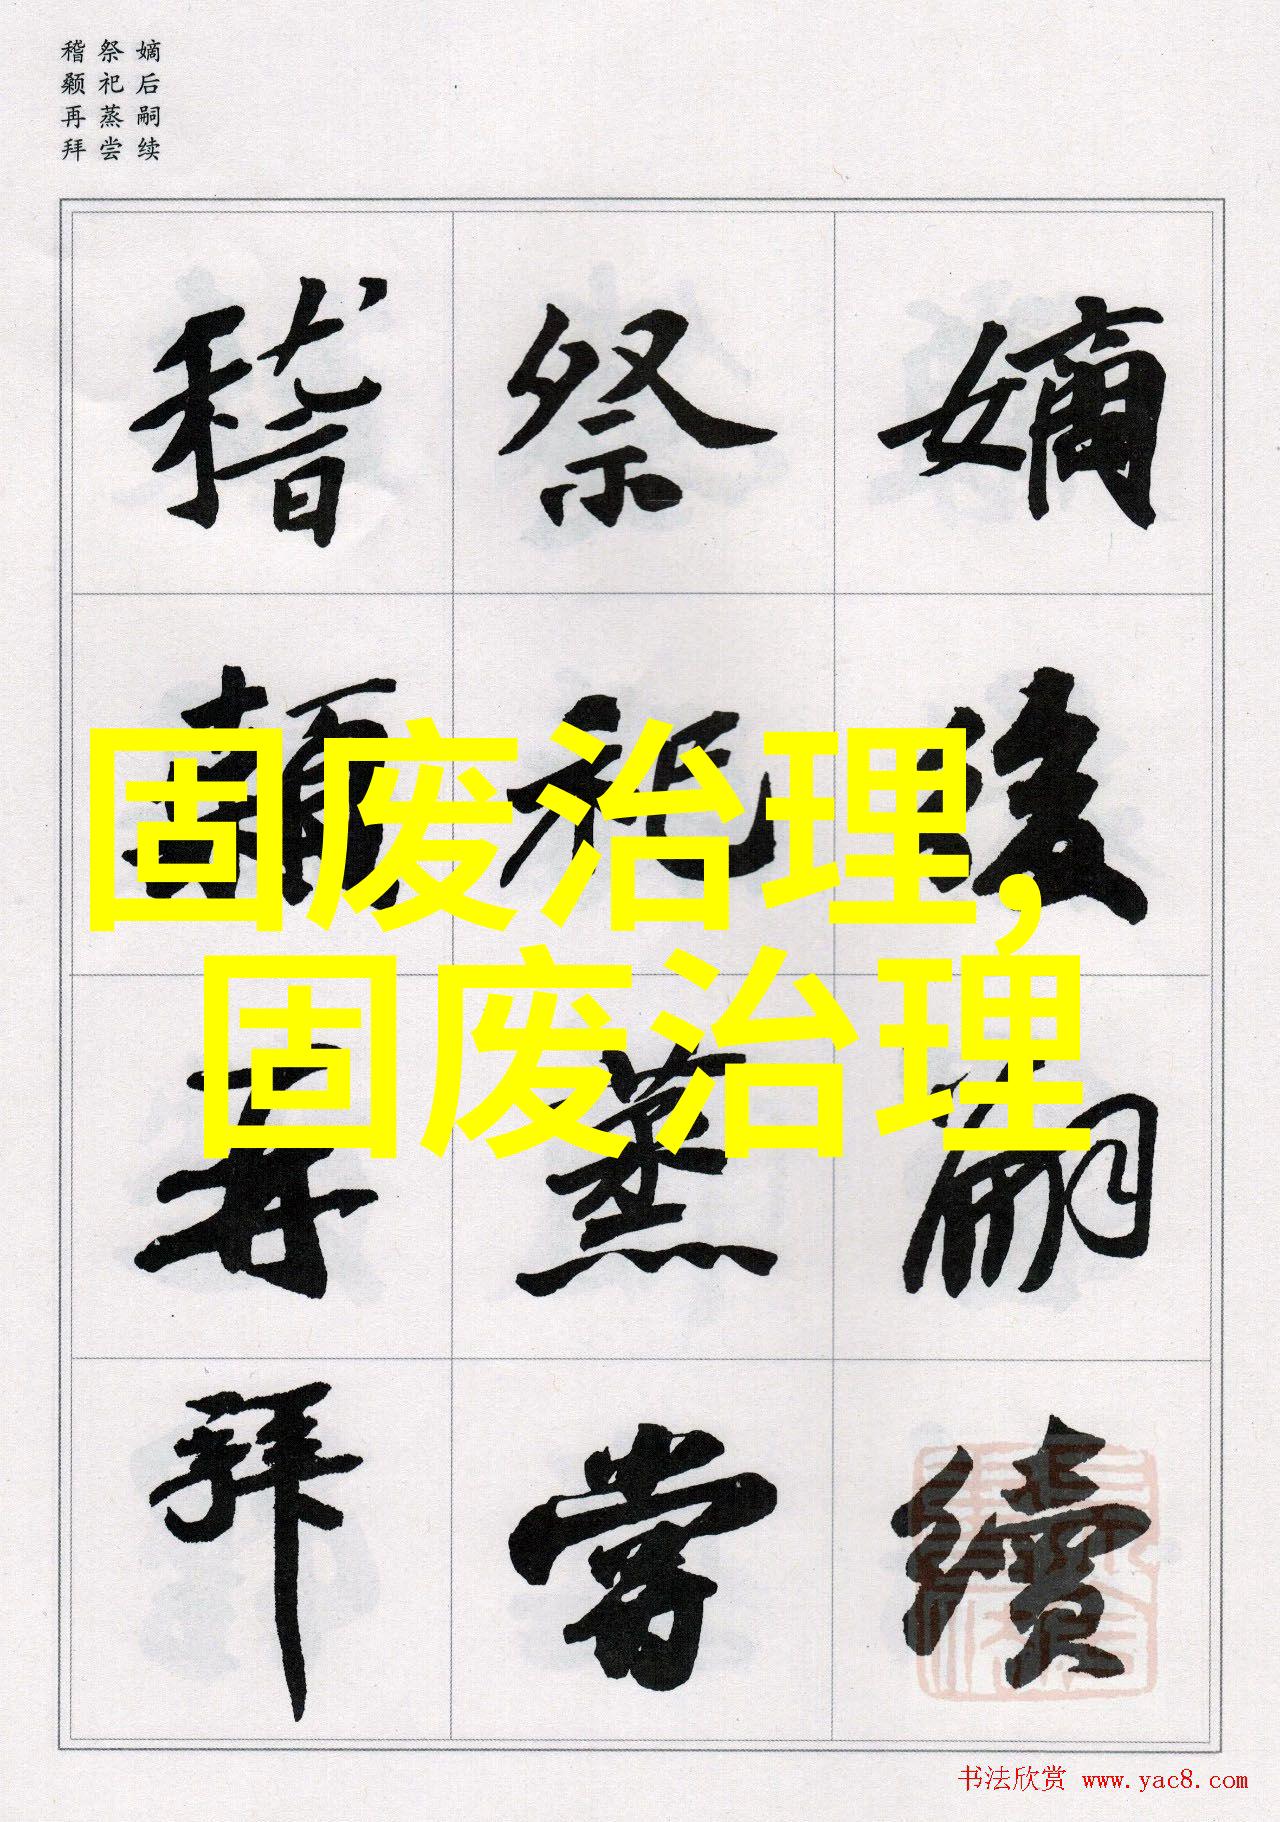 嫡后嗣续
祭祀蒸尝
稽颡再拜
嫡後嗣續
祭祀蒸嘗
稽顙再拜
固废治理,
固废治理
书法欣赏 www.yac8.com